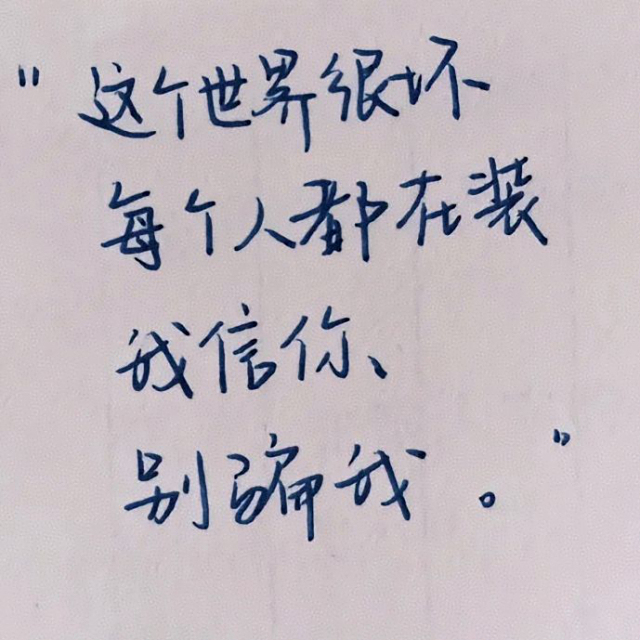 "这个世界很坏
每个人都在装
我信你、
别骗我。"